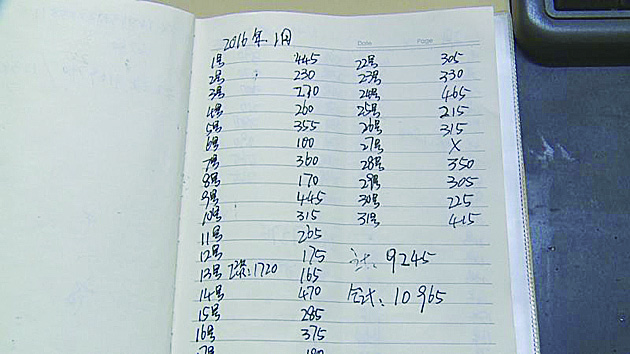 2016年1月
Date Page
1号 445
2号 230
3号
4号 260
5号 355
6号 100
7号 360
8号 170
9号 445
10号 315
11号 265
12号 175
13号 1720 165
14号 470
15号 285
16号 375
22号 305
23号 330
24号 465
25号 215
26号 315
27号 X
28号 350
29号 305
30号 225
31号 415
9245
合计：10965